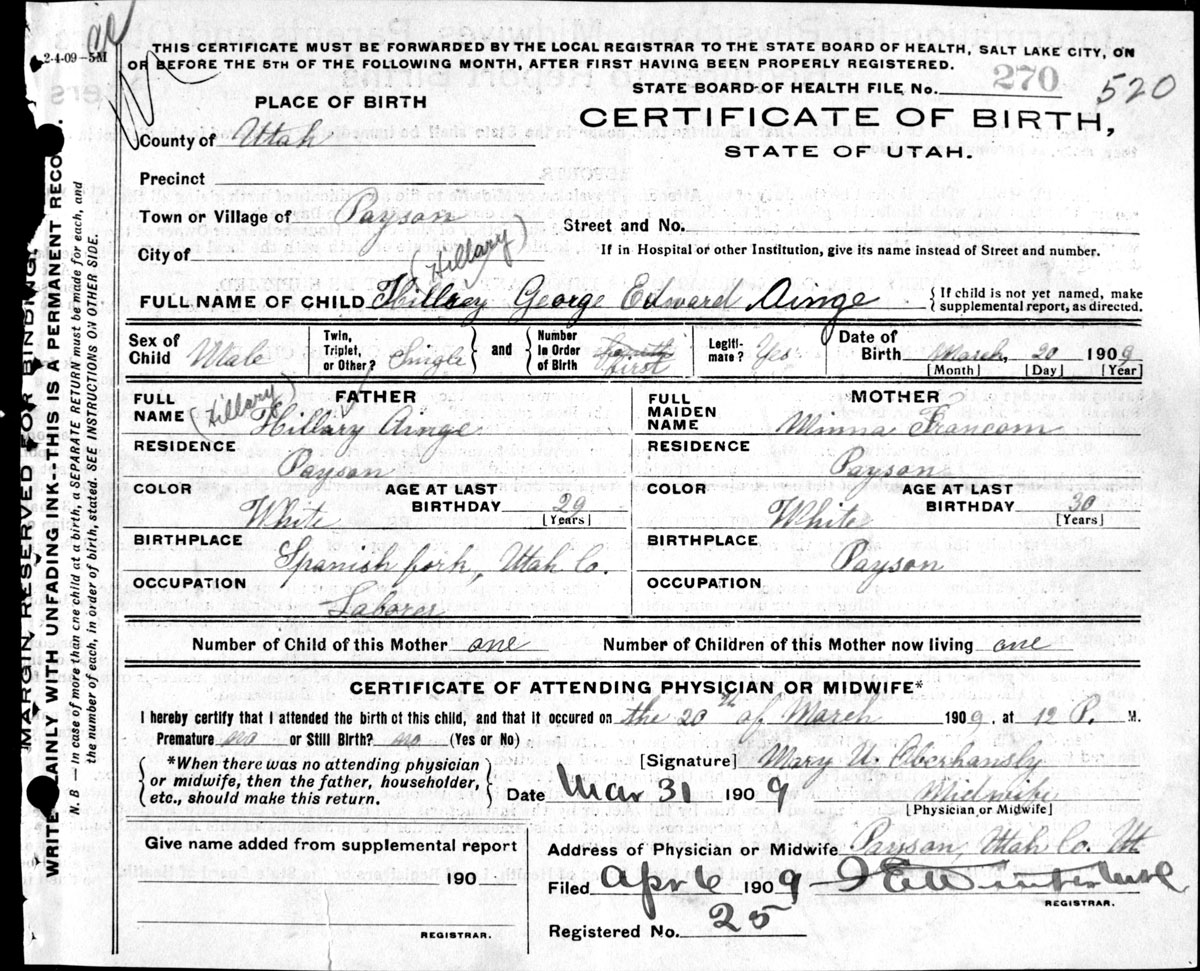 2-4-09-5M
THIS CERTIFICATE MUST BE FORWARDED BY THE LOCAL REGISTRAR TO THE STATE BOARD OF HEALTH, SALT LAKE CITY, ON
OR BEFORE THE 5TH OF THE FOLLOWING MONTH, AFTER FIRST HAVING BEEN PROPERLY REGISTERED.
STATE BOARD OF HEALTH FILE, No. 270 520
PLACE OF BIRTH
CERTIFICATE OF BIRTH,
STATE OF UTAH.
County of Utah
Precinct
Town or Village of Payson
Street and No.
City of
If in Hospital or other Institution, give its name instead of Street and number.
(Hillary)
FULL NAME OF CHILD Hillrey George Edward Ainge
{ If child is not yet named, make
supplemental report, as directed.
Sex of Child Male
Twin, Triplet, or Other? Single
and
Number In Order of Birth first
Legiti-mate? Yes
Date of Birth March, 20 1909
[Month] [Day] [Year]
FATHER
FULL NAME (Hillary) Hillary Ainge
RESIDENCE
Payson
COLOR White
AGE AT LAST BIRTHDAY 29
[Years]
BIRTHPLACE
Spanish fork, Utah Co.
OCCUPATION
Laborer
MOTHER
FULL MAIDEN NAME Minna Francom
RESIDENCE
Payson
COLOR White
AGE AT LAST BIRTHDAY 30
[Years]
BIRTHPLACE
Payson
OCCUPATION
Number of Child of this Mother one
Number of Children of this Mother now living one
CERTIFICATE OF ATTENDING PHYSICIAN OR MIDWIFE*
I hereby certify that I attended the birth of this child, and that it occured on the 20th of March 1909, at 12 P. M.
Premature no or Still Birth? no (Yes or No)
*When there was no attending physician
or midwife, then the father, householder,
etc., should make this return.
[Signature] Mary U. Oberhansly
Date Mar 31 1909 Midwife
[Physician or Midwife]
Give name added from supplemental report
190
REGISTRAR.
Address of Physician or Midwife Payson, Utah Co. Ut
Filed Apr 6 1909
REGISTRAR.
Registered No. 25
MARGIN RESERVED FOR BINDING.
WRITE PLAINLY WITH UNFADING INK--THIS IS A PERMANENT RECO
N. B — In case of more than one child at a birth, a SEPARATE RETURN must be made for each, and
the number of each, in order of birth, stated. SEE INSTRUCTIONS ON OTHER SIDE.